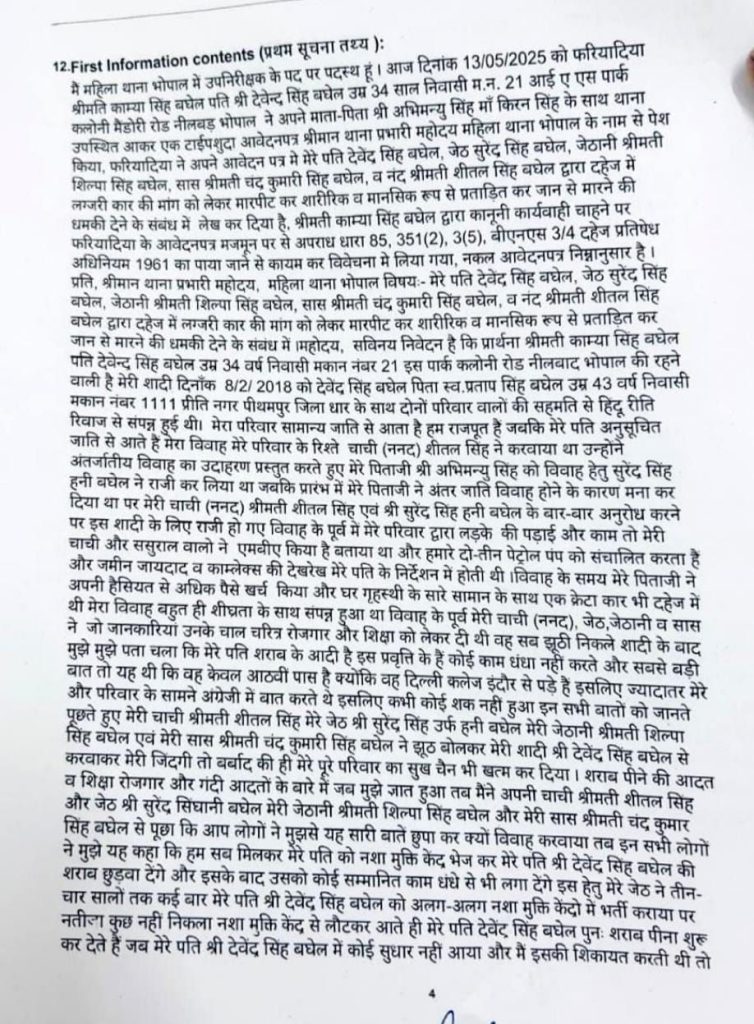 12.First Information contents (प्रथम सूचना तथ्य ):
मैं महिला थाना भोपाल में उपनिरीक्षक के पद पर पदस्थ हूं । आज दिनांक 13/05/2025 को फरियादिया
श्रीमति काम्या सिंह बघेल पति श्री देवेन्द्र सिंह बघेल उम्र 34 साल निवासी म.न. 21 आई ए एस पार्क
कलोनी मैडोरी रोड नीलबड़ भोपाल ने अपने माता-पिता श्री अभिमन्यु सिंह माँ किरन सिंह के साथ थाना
उपस्थित आकर एक टाईपशुदा आवेदनपत्र श्रीमान थाना प्रभारी महोदय महिला थाना भोपाल के नाम से पेश
किया, फरियादिया ने अपने आवेदन पत्र मे मेरे पति देवेंद सिंह बघेल, जेठ सुरेद सिंह बघेल, जेठानी श्रीमती
शिल्पा सिंह बघेल, सास श्रीमती चंद कुमारी सिंह बघेल, व नंद श्रीमती शीतल सिंह बघेल द्वारा दहेज में
लग्जरी कार की मांग को लेकर मारपीट कर शारीरिक व मानसिक रूप से प्रताड़ित कर जान से मारने की
धमकी देने के संबंध में लेख कर दिया है, श्रीमती काम्या सिंह बघेल द्वारा कानूनी कार्यवाही चाहने पर
फरियादिया के आवेदनपत्र मजमून पर से अपराध धारा 85, 351(2), 3(5), बीएनएस 3/4 दहेज प्रतिषेध
अधिनियम 1961 का पाया जाने से कायम कर विवेचना मे लिया गया, नकल आवेदनपत्र निम्नानुसार है ।
प्रति, श्रीमान थाना प्रभारी महोदय, महिला थाना भोपाल विषयः- मेरे पति देवेंद सिंह बघेल, जेठ सुरेंद सिंह
बघेल, जेठानी श्रीमती शिल्पा सिंह बघेल, सास श्रीमती चंद कुमारी सिंह बघेल, व नंद श्रीमती शीतल सिंह
बघेल द्वारा दहेज में लग्जरी कार की मांग को लेकर मारपीट कर शारीरिक व मानसिक रूप से प्रताड़ित कर
जान से मारने की धमकी देने के संबंध में ।महोदय, सविनय निवेदन है कि प्रार्थना श्रीमती काम्या सिंह बघेल
पति देवेन्द सिंह बघेल उम्र 34 वर्ष निवासी मकान नंबर 21 इस पार्क कलोनी रोड नीलवाद भोपाल की रहने
वाली है मेरी शादी दिनाँक 8/2/ 2018 को देवेंद सिंह बघेल पिता स्व.प्रताप सिंह बघेल उम्र 43 वर्ष निवासी
मकान नंबर 1111 प्रीति नगर पीथमपुर जिला धार के साथ दोनों परिवार वालों की सहमति से हिंदू रीति
रिवाज से संपन्न हुई थी। मेरा परिवार सामान्य जाति से आता है हम राजपूत हैं जबकि मेरे पति अनुसूचित
जाति से आते हैं मेरा विवाह मेरे परिवार के रिश्ते चाची (ननद) शीतल सिंह ने करवाया था उन्होंने
अंतर्जातीय विवाह का उदाहरण प्रस्तुत करते हुए मेरे पिताजी श्री अभिमन्यु सिंह को विवाह हेतु सुरेंद सिंह
हनी बघेल ने राजी कर लिया था जबकि प्रारंभ में मेरे पिताजी ने अंतर जाति विवाह होने के कारण मना कर
दिया था पर मेरी चाची (ननद) श्रीमती शीतल सिंह एवं श्री सुरेंद सिंह हनी बघेल के बार-बार अनुरोध करने
पर इस शादी के लिए राजी हो गए विवाह के पूर्व में मेरे परिवार द्वारा लड़के की पड़ाई और काम तो मेरी
चाची और ससुराल वालो ने एमवीए किया है बताया था और हमारे दो-तीन पेट्रोल पंप को संचालित करता हैं
और जमीन जायदाद व काम्लेक्स की देखरेख मेरे पति के निर्देशन में होती थी ।विवाह के समय मेरे पिताजी ने
अपनी हैसियत से अधिक पैसे खर्च किया और घर गृहस्थी के सारे सामान के साथ एक क्रेटा कार भी दहेज में
थी मेरा विवाह बहुत ही शीघ्रता के साथ संपन्न हुआ था विवाह के पूर्व मेरी चाची (ननद), जेठ,जेठानी व सास
ने जो जानकारियां उनके चाल चरित्र रोजगार और शिक्षा को लेकर दी थी वह सब झूठी निकले शादी के बाद
मुझे मुझे पता चला कि मेरे पति शराब के आदी है इस प्रवृत्ति के हैं कोई काम धंधा नहीं करते और सबसे बड़ी
बात तो यह थी कि वह केवल आठवीं पास है क्योंकि वह दिल्ली कलेज इंदौर से पड़े हैं इसलिए ज्यादातर मेरे
और परिवार के सामने अंग्रेजी में बात करते थे इसलिए कभी कोई शक नहीं हुआ इन सभी बातों को जानते
पूछते हुए मेरी चाची श्रीमती शीतल सिंह मेरे जेठ श्री सुरेंद सिंह उर्फ हनी बघेल मेरी जेठानी श्रीमती शिल्पा
सिंह बघेल एवं मेरी सास श्रीमती चंद्र कुमारी सिंह बघेल ने झूठ बोलकर मेरी शादी श्री देवेंद सिंह बघेल से
करवाकर मेरी जिदगी तो बर्बाद की ही मेरे पूरे परिवार का सुख चैन भी खत्म कर दिया । शराब पीने की आदत
व शिक्षा रोजगार और गंदी आदतों के बारे में जब मुझे ज्ञात हुआ तब मैंने अपनी चाची श्रीमती शीतल सिंह
और जेठ श्री सुरेंद सिंघानी बघेल मेरी जेठानी श्रीमती शिल्पा सिंह बघेल और मेरी सास श्रीमती चंद्र कुमार
सिंह बघेल से पूछा कि आप लोगों ने मुझसे यह सारी बातें छुपा कर क्यों विवाह करवाया तब इन सभी लोगों
ने मुझे यह कहा कि हम सब मिलकर मेरे पति को नशा मुक्ति केंद भेज कर मेरे पति श्री देवेंद सिंह बघेल की
शराब छुड़वा देंगे और इसके बाद उसको कोई सम्मानित काम धंधे से भी लगा देंगे इस हेतु मेरे जेठ ने तीन-
चार सालों तक कई बार मेरे पति श्री देवेंद सिंह बघेल को अलग-अलग नशा मुक्ति केंदो में भर्ती कराया पर
नतीजा कुछ नहीं निकला नशा मुक्ति केंद से लौटकर आते ही मेरे पति देवेंद सिंह बघेल पुनः शराब पीना शुरू
कर देते हैं जब मेरे पति श्री देवेंद सिंह बघेल में कोई सुधार नहीं आया और मैं इसकी शिकायत करती थी तो
4